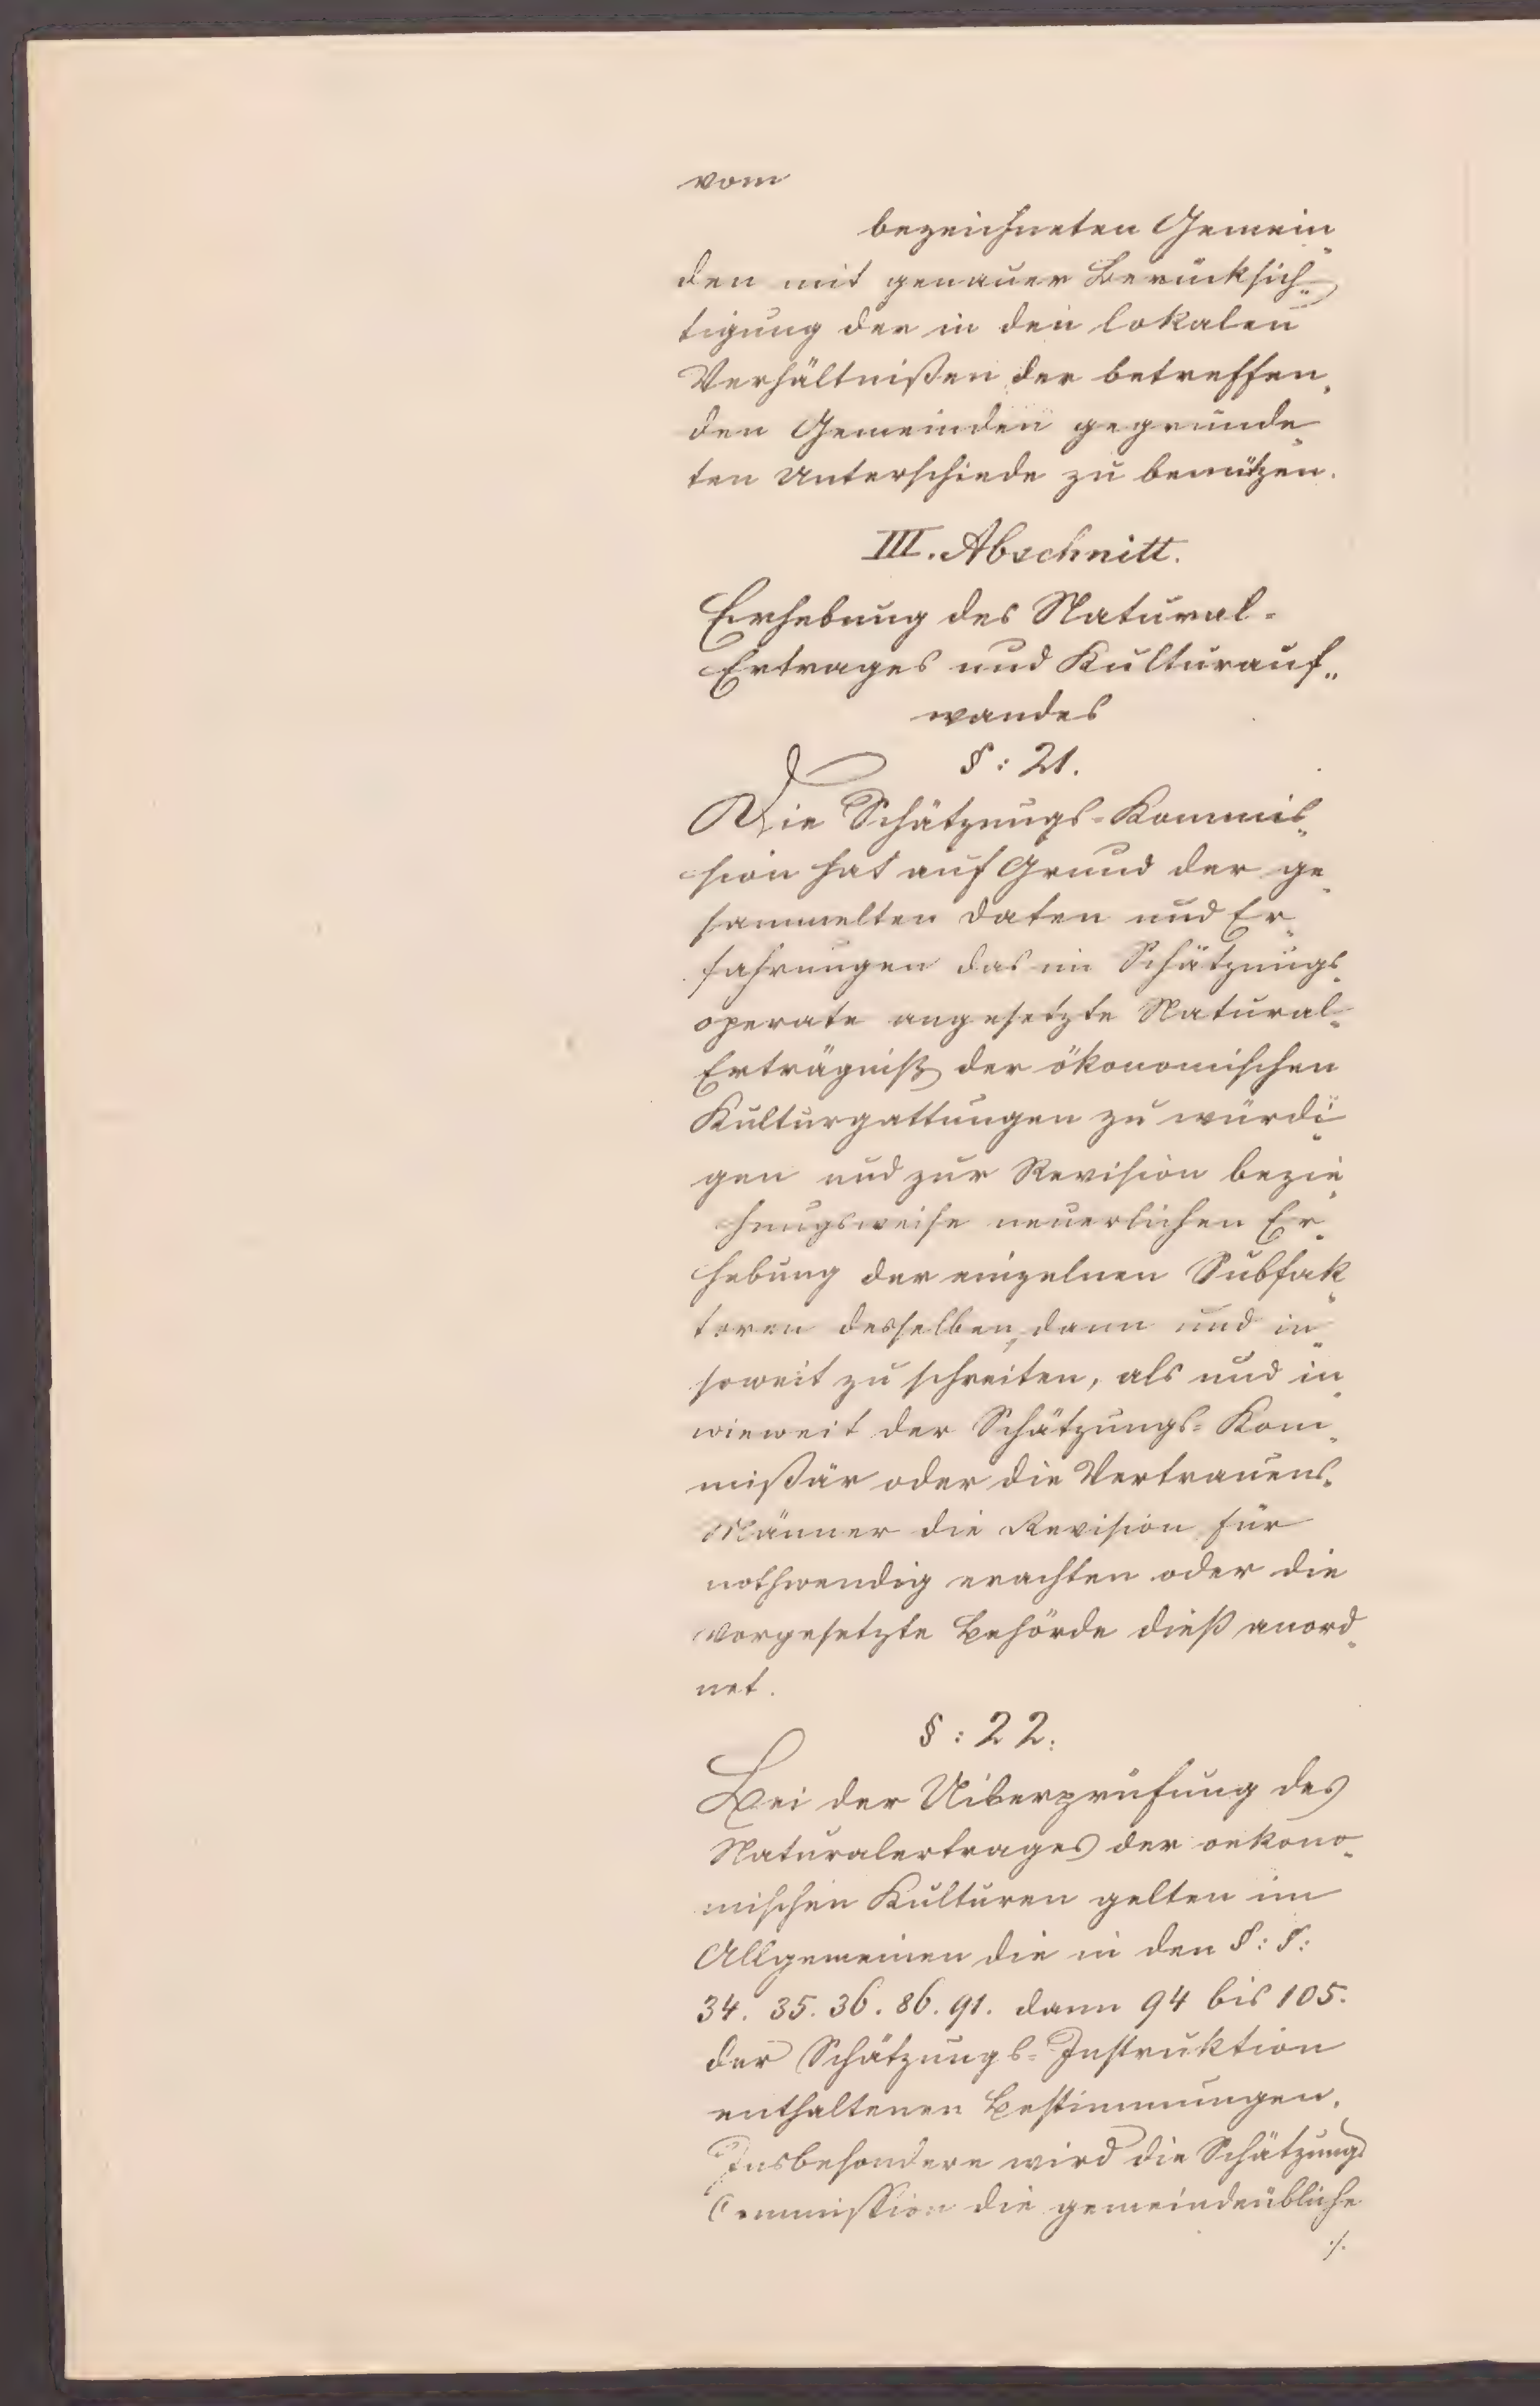 vom
bezeichneten Gemein„
den mit genauer Berücksich„
tigung der in den lokalen
Verhältnißen der betreffen„
den Gemeinden gegründe„
ten Unterschiede zu benützen.
III. Abschnitt.
Erhebung des Natural=
Ertrages und Kulturauf„
wandes
§: 21.
Die Schätzungs=Kommis„
sion hat auf Grund der ge„
sammelten Daten und Er„
fahrungen das im Schätzungs„
operate angesetzte Natural„
Erträgniß der ökonomischen
Kulturgattungen zu würdi„
gen und zur Revision bezie„
hungsweise neuerlichen Er„
hebung der einzelnen Subfak„
toren desselben, dann und in„
soweit zu schreiten, als und in„
wieweit der Schätzungs=Kom„
mißär oder die Vertrauens„
Männer die Revision für
nothwendig erachten oder die
vorgesetzte Behörde dieß anord„
net.
§: 22.
Bei der Uiberprüfung des
Naturalertrages der oekono„
mischen Kulturen gelten im
Allgemeinen die in den §: §:
34. 35. 36. 86. 91. dann 94 bis 105.
der Schätzungs=Instruktion
enthaltenen Bestimmungen.
Insbesondere wird die Schätzungs
Commission die gemeindeübliche
./.